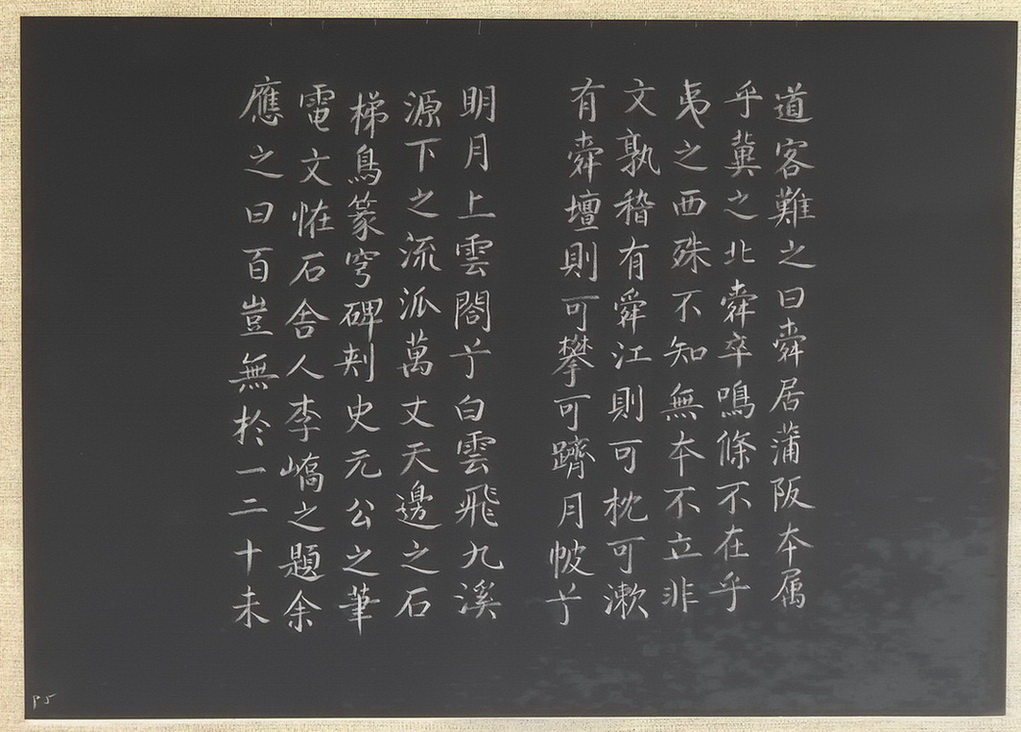 道客難之曰舜居蒲阪本属
乎冀之北舜卒鳴條不在乎
夷之西殊不知無本不立非
文孰稽有舜江則可枕可漱
有舜壇則可攀可躋月帔兮
明月上雲閣兮白雲飛九溪
源下之流派萬丈天邊之石
梯鳥篆穹碑刺史元公之筆
電文恠石舍人李嶠之題余
應之曰百豈無於一二十未
P5